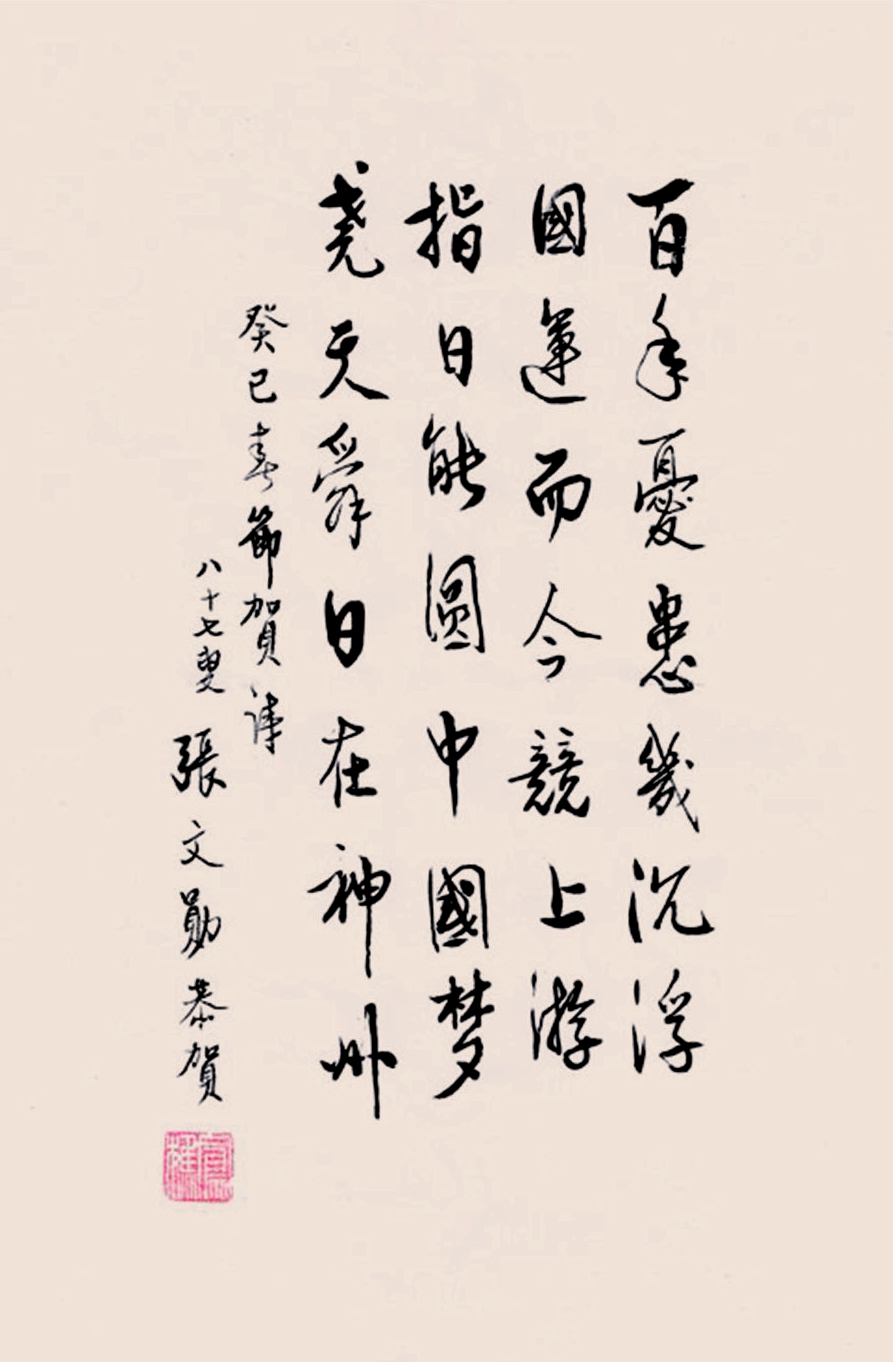 百年憂患幾沉浮
國運而今競上游
指日能圓中國梦
尧天舜日在神州
癸巳春節賀詩
八十七叟 張文勛恭賀